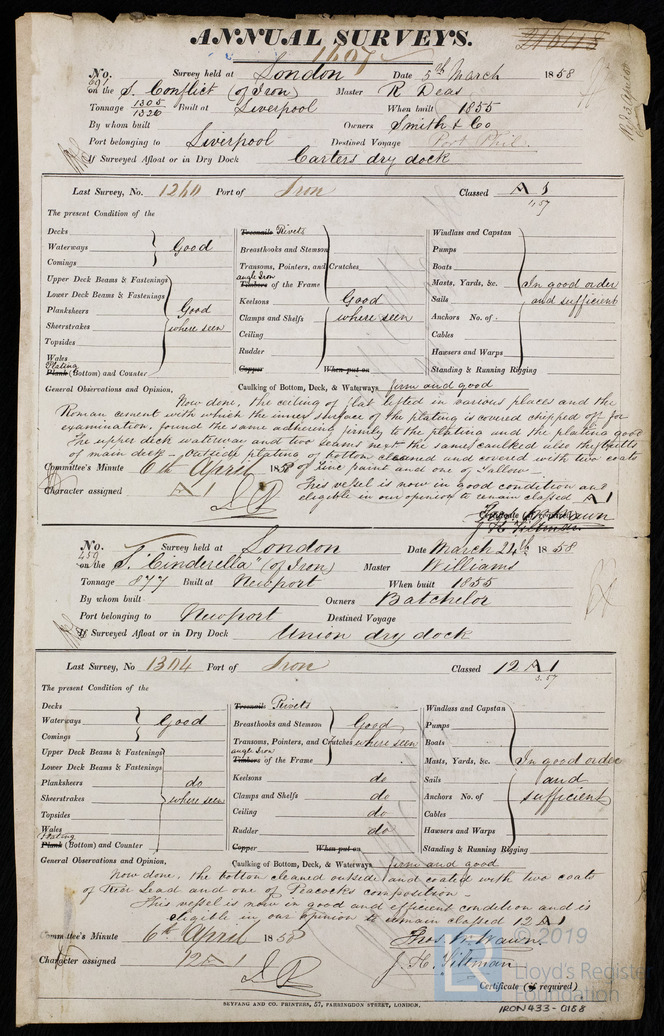 ANNUAL SURVEYS.
1607
No. 391 Survey held at London Date 5th March 1858
on the S. Conflict (of Iron) Master R Deas
Tonnage 1305 1326 Built at Liverpool When built 1855
By whom built Owners Smith & Co
Port belonging to Liverpool Destined Voyage Port Phil.
If Surveyed Afloat or in Dry Dock Carters dry dock
Last Survey, No. 1260 Port of Iron Classed A 1
1,57
The present Condition of the
Decks
Waterways Good
Comings
Upper Deck Beams & Fastenings
Lower Deck Beams & Fastenings
Planksheers Good
Sheerstrakes where seen
Topsides
Wales
Plating
Plank (Bottom) and Counter
Treenails Rivets
Breasthooks and Stemson
Transoms, Pointers, and Crutches
angle Iron
Timbers of the Frame
Keelsons Good
Clamps and Shelfs where seen
Ceiling
Rudder
Copper When put on
Windlass and Capstan
Pumps
Boats
Masts, Yards, &c. In good order
Sails and sufficient
Anchors No. of
Cables
Hawsers and Warps
Standing & Running Rigging
General Observations and Opinion, Caulking of Bottom, Deck, & Waterways firm and good
Now done, the ceiling of flat lifted in various places and the
Roman cement with which the inner surface of the plating is covered chipped off for
examination, found the same adhering firmly to the plating and the plating good
The upper deck waterway and two seams next the same caulked also the butts
of main deck - Outside plating of bottom cleaned and covered with two coats
Committee's Minute 6th April 1858 of Zinc paint and one of Tallow
This vessel is now in good condition and
Character assigned A 1 eligible in our opinion to remain classed A 1
Certificate (if required)
J. H. Tiltman
No. 459 Survey held at London Date March 24th 1858
on the S. "Cinderella" (of Iron) Master Williams
Tonnage 877 Built at Newport When built 1855
By whom built Owners Batchelor
Port belonging to Newport Destined Voyage
If Surveyed Afloat or in Dry Dock Union dry dock
Last Survey, No 1304 Port of Iron Classed 12 A 1
3.57
The present Condition of the
Decks
Waterways Good
Comings
Upper Deck Beams & Fastenings
Lower Deck Beams & Fastenings
Planksheers do
Sheerstrakes where seen
Topsides
Wales
Plating
Plank (Bottom) and Counter
Treenails Rivets
Breasthooks and Stemson Good
Transoms, Pointers, and Crutches where seen
angle Iron
Timbers of the Frame
Keelsons do
Clamps and Shelfs do
Ceiling do
Rudder do
Copper When put on
Windlass and Capstan
Pumps
Boats
Masts, Yards, &c. In good order
Sails and
Anchors No. of sufficient
Cables
Hawsers and Warps
Standing & Running Rigging
General Observations and Opinion, Caulking of Bottom, Deck, & Waterways firm and good
Now done, the bottom cleaned outside and coated with two coats
of Red Lead and one of Peacocks composition -
This vessel is now in good and efficient condition and is
eligible in our opinion to remain classed 12 A 1
Committee's Minute 6th April 1858
Character assigned 12 A 1
J. H. Tiltman
Certificate (if required)
SEYFANG AND CO. PRINTERS, 57, FARRINGDON STREET, LONDON.
© 2019
Lloyd's Register
Foundation
IRON433-0168